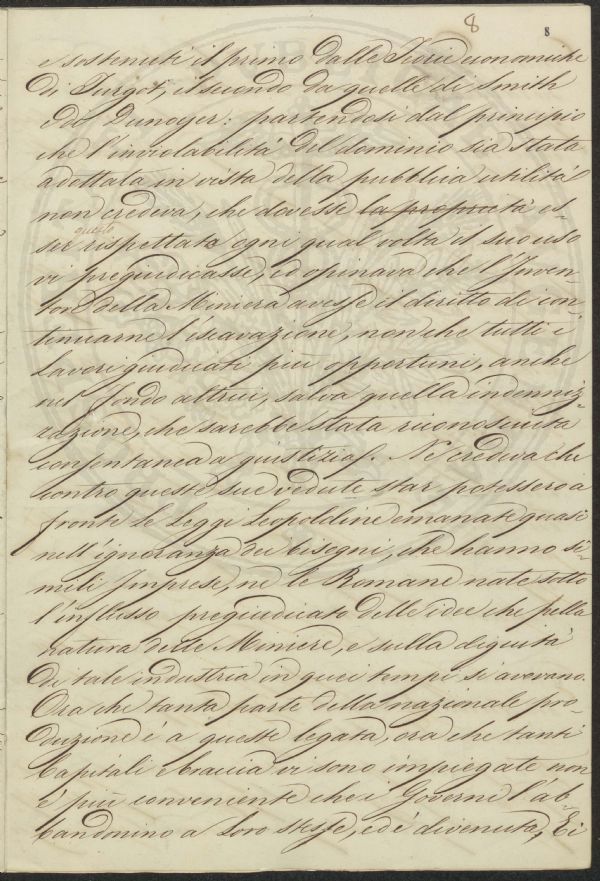 8 8
e sostenuti il primo dalle Teorie economiche
di Turgot, il secondo da quelle di Smith
e di Dunoyer: partendosi dal principio
che l'inviolabilità del dominio sia stata
adottata in vista della pubblica utilità
non credeva, che dovesse la proprietà es-
questo
ser rispettato ogni qual volta il suo uso
vi pregiudicasse, ed opinava che l'Inven-
tore della Miniera avesse il diritto di con-
tinuarne l'escavazione, non che tutti i
Lavori giudicati più opportuni, anche
nel fondo altrui, salva quella indenniz-
zazione, che sarebbe stata riconosciuta
consentanea a giustizia. Ne credeva che
contro queste sue vedute star potessero a
fronte le Leggi Leopoldine emanate quasi
nell'ignoranza dei bisogni, che hanno si-
mili Imprese, nè le Romane nate sotto
l'influsso pregiudicato delle idee che sulla
natura delle Miniere, e sulla dignità
di tale industria in quei tempi si avevano.
Ora che tanta parte della nazionale pro-
duzione è a queste legata, ora che tanti
Capitali e braccia vi sono impiegate non
è più conveniente che i Governi l'ab-
bandonino a Loro stesse, ed è divenuta, Ei